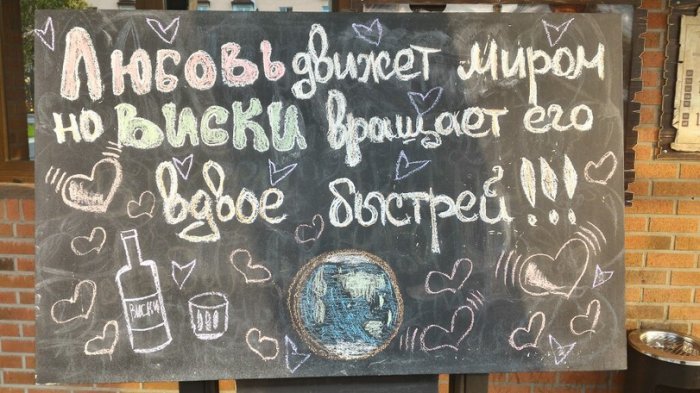 Любовь движет миром
но виски вращает его
вдвое быстрей!!!
виски